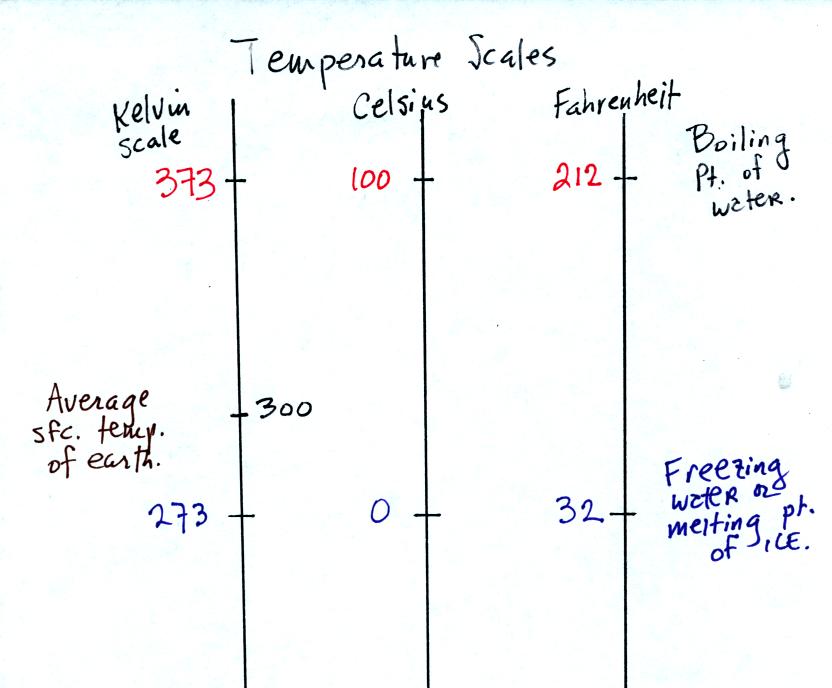 Temperature Scales
Kelvin
scale
Celsius
Fahrenheit
373
100
212
Boiling
Pt. of
water.
Average
sfc. temp.
of earth.
300
273
0
32
Freezing
water or
melting pt.
of ICE.